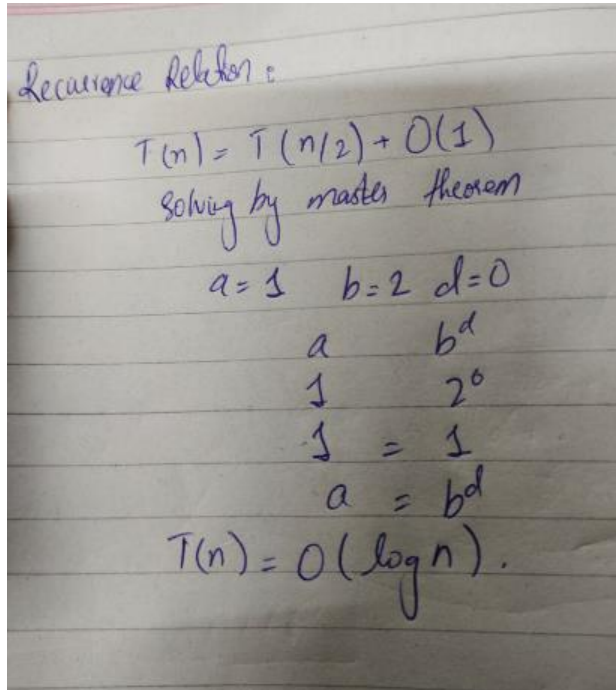 Recurrence Relation :
T(n) = T(n/2) + O(1)
Solving by master theorem
a = 1 b = 2 d = 0
a b^d
1 2^0
1 = 1
a = b^d
T(n) = O(log n).